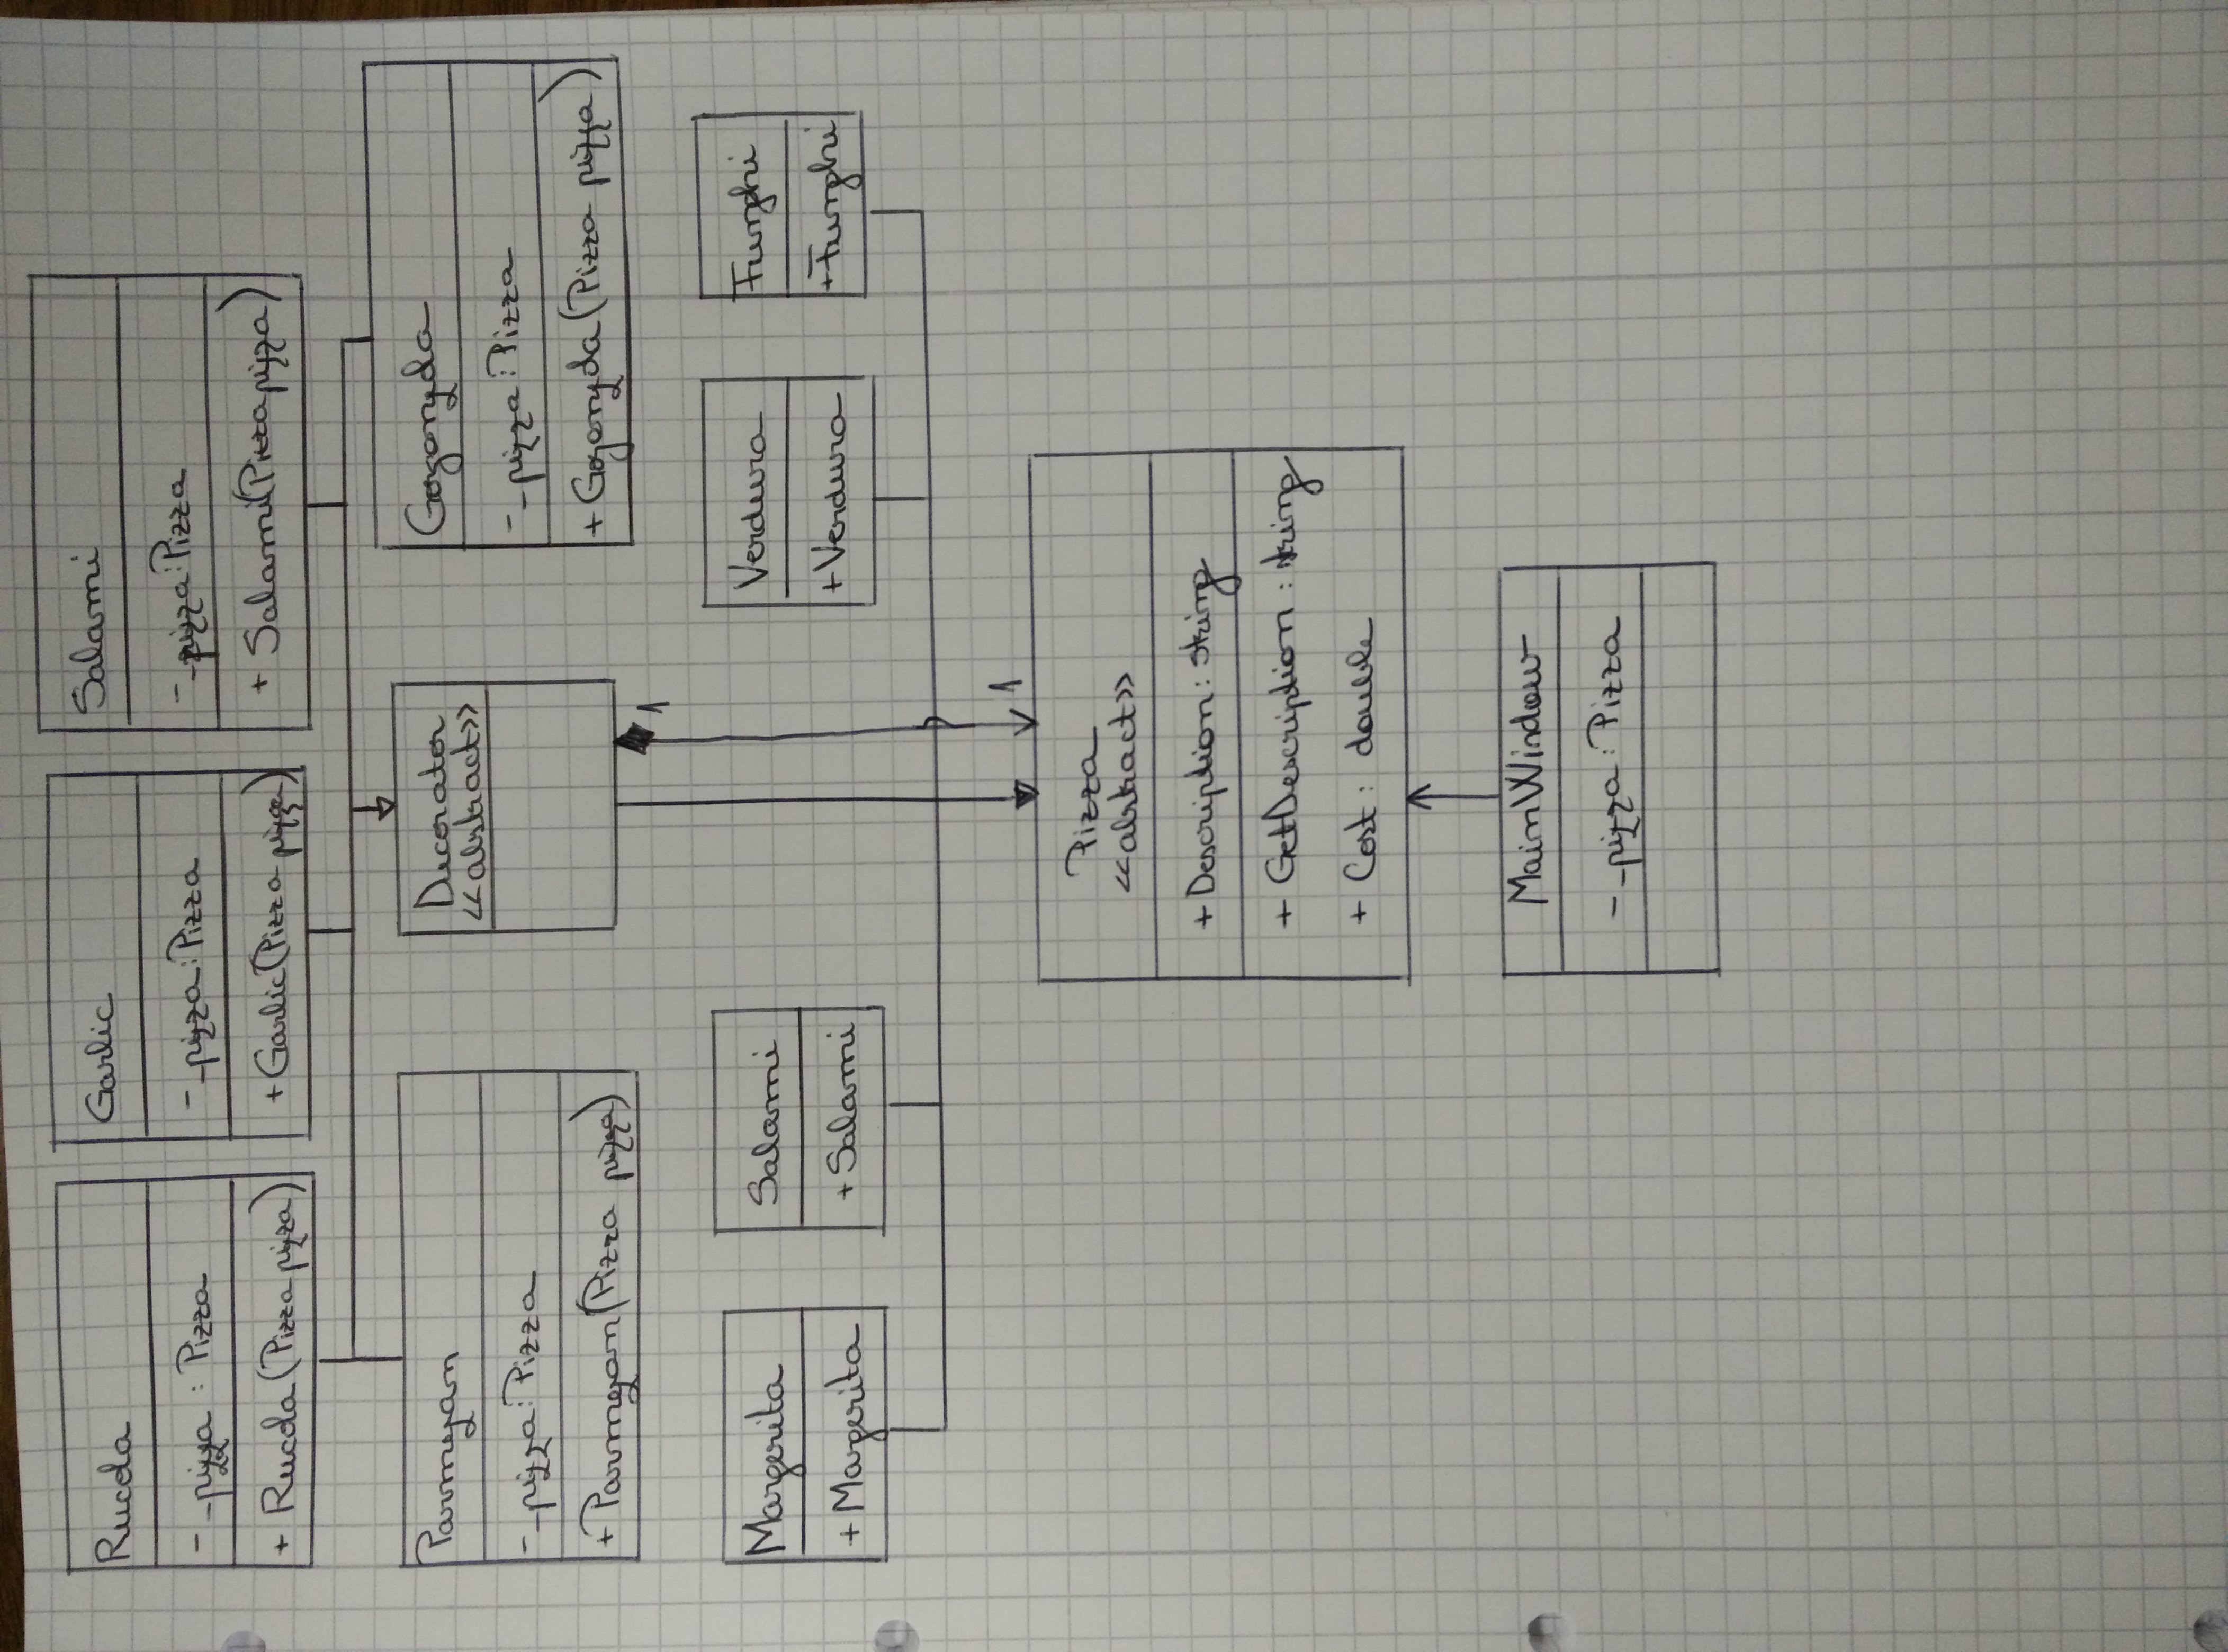 Rucola
- _pizza : Pizza
+ Rucola (Pizza pizza)
Garlic
- _pizza : Pizza
+ Garlic (Pizza pizza)
Salami
- _pizza : Pizza
+ Salami (Pizza pizza)
Parmejan
- _pizza : Pizza
+ Parmejan (Pizza pizza)
Decorator
<<abstract>>
- _pizza : Pizza
(Pizza pizza)
1
Margerita
+ Margerita
Salami
+ Salami
Verdura
+ Verdura
Funghi
+ Funghi
1
Pizza
<<abstract>>
+ Description : string
+ GetDescription : string
+ Cost : double
MainWindow
- _pizza : Pizza